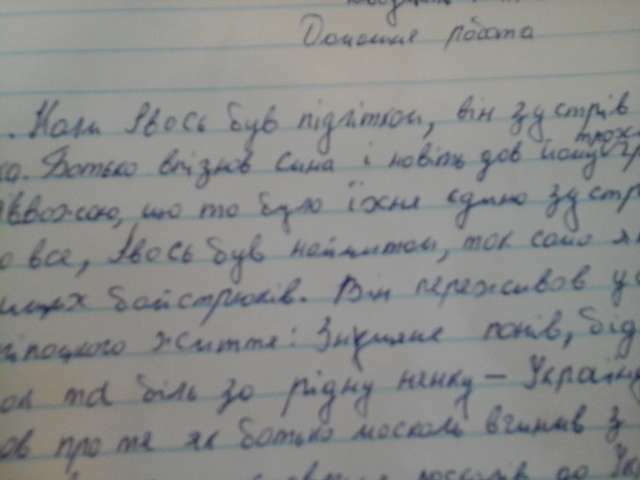 Домашня робота
. Коли Івась був підлітком, він зустрів
трохи
ко. Батько впізнав сина і навіть дав йому
вважаю, що то було їхня єдина зустр
о все, Івась був наймитом, так само як
інших байстрюків. Він переживав ус
ріпацького життя: Знущання панів, бід
ок та біль за рідну неньку – Україну
ов про те як батько москаль вчинив з